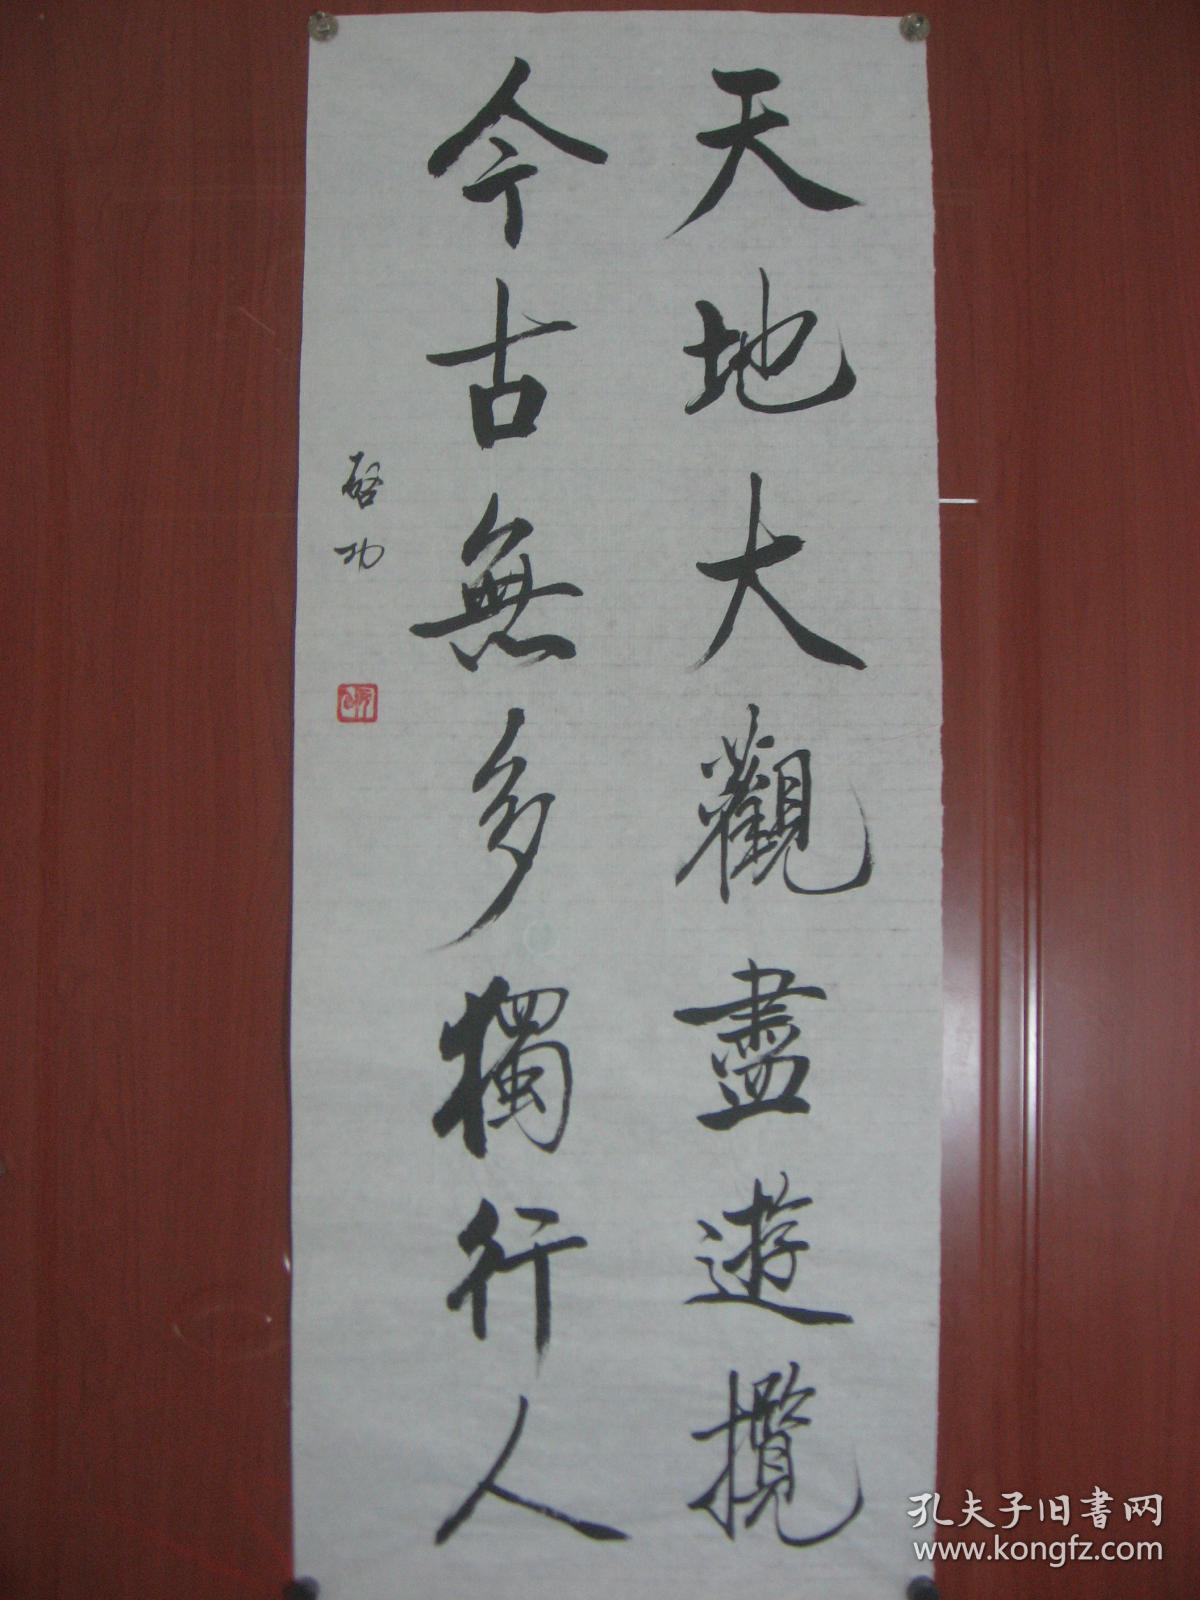 天地大觀盡遊攬
今古無多獨行人
啓功
孔夫子旧書网
www.kongfz.com